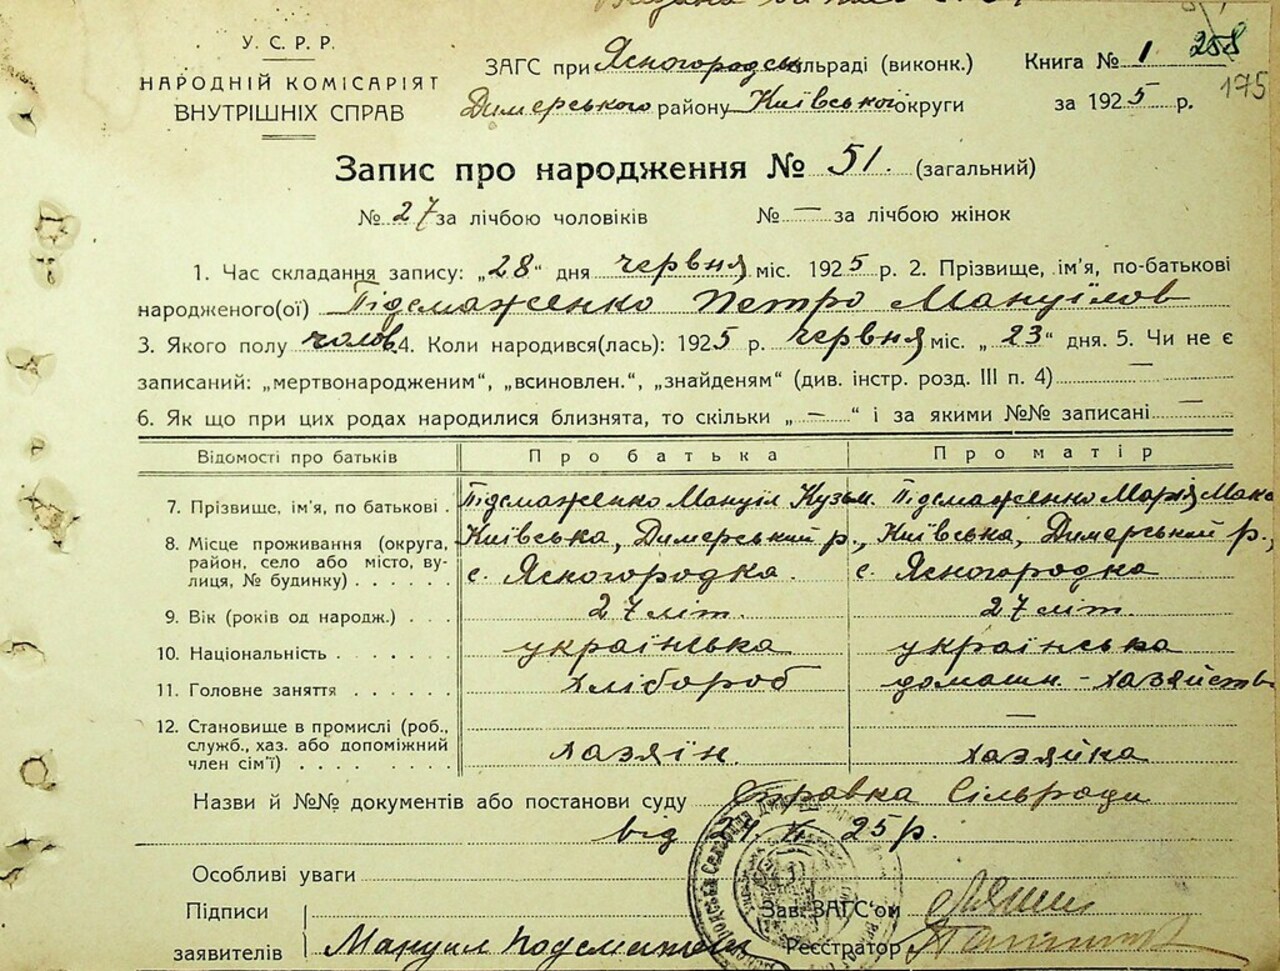 У. С. Р. Р.
НАРОДНІЙ КОМІСАРІЯТ
ВНУТРІШНІХ СПРАВ
ЗАГС при Ясногородськ сільраді (виконк.)
Димерського району Київського округи
Книга № 1 258
за 1925 р. 175
Запис про народження № 51. (загальний)
№ 27 за лічбою чоловіків № — за лічбою жінок
1. Час складання запису: „28“ дня червня міс. 1925 р. 2. Прізвище, ім'я, по-батькові
народженого(ої) Підсмаженко Петро Мануїлов
3. Якого полу чолов. 4. Коли народився(лась): 1925 р. червня міс. „23“ дня. 5. Чи не є
записаний: „мертвонародженим“, „всиновлен.“, „знайденям“ (див. інстр. розд. III п. 4) —
6. Як що при цих родах народилися близнята, то скільки „—“ і за якими №№ записані —
Відомості про батьків Про батька Про матір
7. Прізвище, ім'я, по батькові . Підсмаженко Мануіл Кузьм. Підсмаженко Марія Мака
8. Місце проживання (округа, район, село або місто, вулиця, № будинку) . . . . . Київська, Димерський р., с. Ясногородка. Київська, Димерський р., с. Ясногородка
9. Вік (років од народж.) . . . 27 літ. 27 літ.
10. Національність . . . . . . українська українська
11. Головне заняття . . . . . . хлібороб домашн. - хазяйств
12. Становище в промислі (роб., служб., хаз. або допоміжний член сім'ї) . . . . . . . хазяїн. — хазяйка
Назви й №№ документів або постанови суду Справка Сільради
від 24. VI 25 р.
Особливі уваги
Підписи
заявителів Мануил
Зав. ЗАГС'ом
Реєстратор